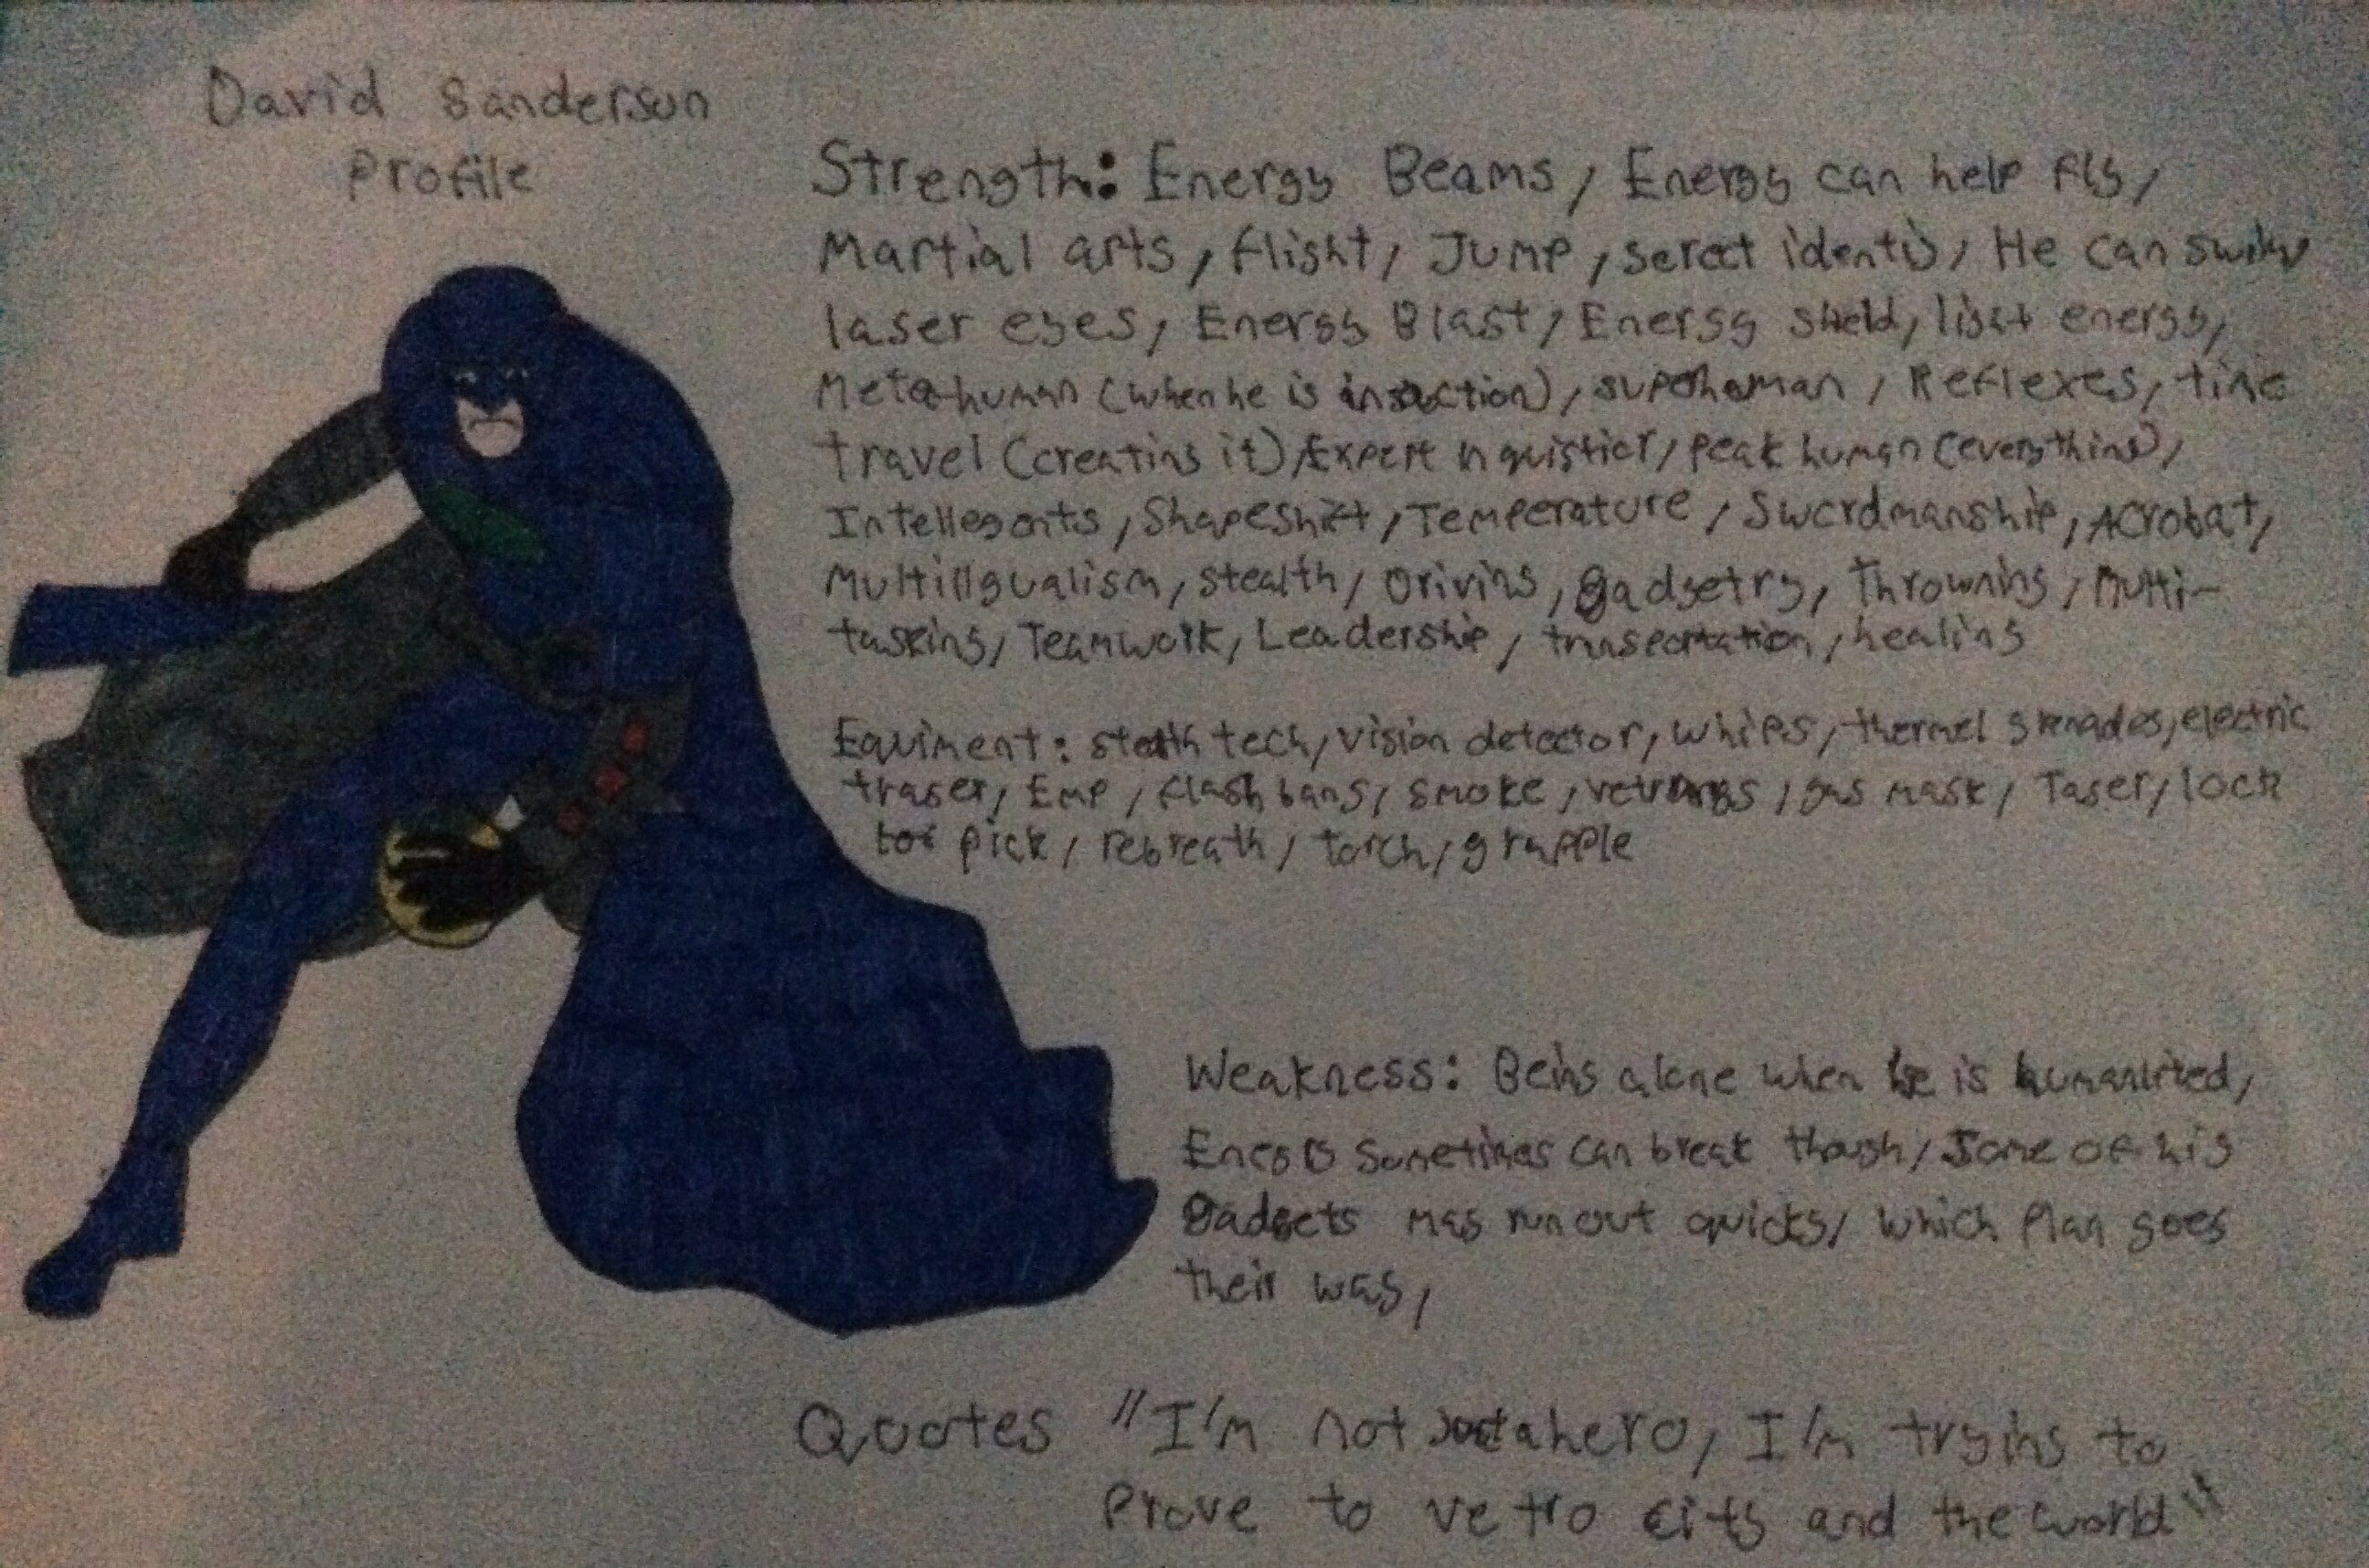 David Sanderson
Profile
Strength: Energy Beams, Energy can help fly,
Martial arts, flight, Jump, serect identiy, He can swim
laser eyes, Energy Blast, Energy sheld, light energy,
Meta-human (when he is in action), superhuman, Reflexes, time
travel (creating it), Expert, peak human (everything),
Intellegents, Shapeshift, Temperature, Swordmanship, Acrobat,
Multiligualism, stealth, Driving, gadgetry, Throwning, Multi-
tasking, Teamwork, Leadership, trnasportation, healing
Equiment: stealth tech, vision detector, whips, thermel grenades, electric
traser, Emp, flash bang, smoke, vetrangs, gas mask, Taser, lock
pick, rebreath, torch, grapple
Weakness: Being alone when he is
Energy sometimes can break though, Some of his
gadgets may run out quicky, which plan goes
their way,
Quotes "I'm not just a hero, I'm trying to
Prove to vetro city and the world"